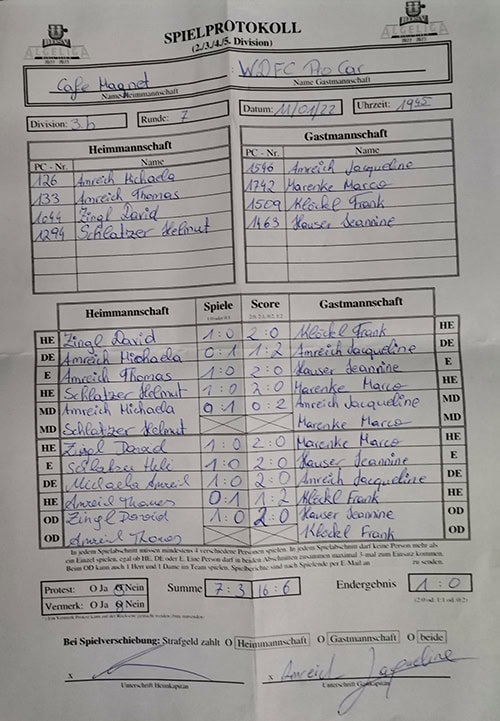 ALGELICA
SPIELPROTOKOLL
(2./3./4./5. Division)
ALGELICA
Cafe Magnet : WDFC Pro Car
Name Heimmannschaft Name Gastmannschaft
Division: 3.h Runde: 7 Datum: 11/01/22 Uhrzeit: 1945
Heimmannschaft Gastmannschaft
PC - Nr. Name PC - Nr. Name
126 Amreich Michaela 1546 Amreich Jacqueline
133 Amreich Thomas 1742 Marenke Marco
1044 Zingl David 1509 Klöckl Frank
1294 Schlatzer Helmut 1463 Hauser Jeannine
Heimmannschaft Spiele Score Gastmannschaft
HE Zingl David 1:0 2:0 Klöckl Frank HE
DE Amreich Michaela 0:1 1:2 Amreich Jacqueline DE
E Amreich Thomas 1:0 2:0 Hauser Jeannine E
HE Schlatzer Helmut 1:0 2:0 Marenke Marco HE
MD Amreich Michaela 0:1 0:2 Amreich Jacqueline MD
MD Schlatzer Helmut Marenke Marco MD
HE Zingl David 1:0 2:0 Marenke Marco HE
E Schlatzer Heli 1:0 2:0 Hauser Jeannine E
DE Michaela Amreich 1:0 2:0 Amreich Jacqueline DE
HE Amreich Thomas 0:1 1:2 Klöckl Frank HE
OD Zingl David 1:0 2:0 Hauser Jeannine OD
OD Amreich Thomas Klöckl Frank OD
In jedem Spielabschnitt müssen mindestens 4 verschiedene Personen spielen. In jedem Spielabschnitt darf keine Person mehr als
ein Einzel spielen, egal ob HE, DE oder E. Eine Person darf in beiden Abschnitten zusammen maximal 3-mal zum Einsatz kommen.
Beim OD kann auch 1 Herr und 1 Dame im Team spielen. Spielberichte sind nach Spielende per E-Mail an zu senden.
Protest: O Ja O Nein Summe 7:3 16:6 Endergebnis 1:0
Vermerk: O Ja O Nein (2:0 od. 1:1 od. 0:2)
Bei Spielverschiebung: Strafgeld zahlt O Heimmannschaft O Gastmannschaft O beide
x x Amreich Jacqueline
Unterschrift Heimkapitän Unterschrift Gastkapitän